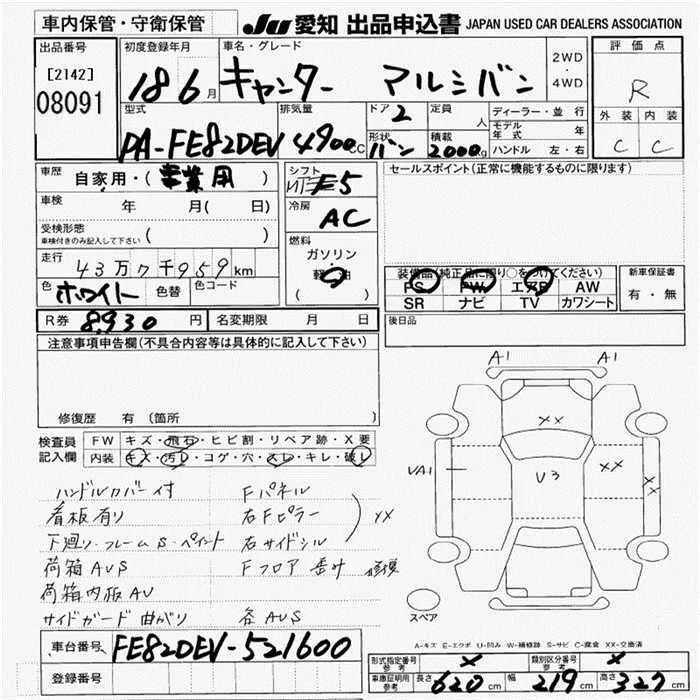 車内保管・守衛保管
JU 愛知 出品申込書 JAPAN USED CAR DEALERS ASSOCIATION
出品番号
[2142]
08091
初度登録年月
18 6月
車名・グレード
キャンター マルシバン
2WD
・
4WD
評価点
R
外装 内装
C C
型式
PA-FE82DEV
排気量
4900cc
ドア 2
形状 バン
定員 人
積載 2000kg
ディーラー・並行
モデル年式 年
ハンドル 左・右
車歴
自家用・( 営業用 )
車検 年 月( 日)
受検形態
車検付きのみ記入して下さい ( )
走行
43万7千959km
色 ホワイト 色替 色コード
シフト
F5
冷房
AC
燃料
ガソリン
・
軽油
( )
セールスポイント(正常に機能するものに限ります)
装備品(純正品に限り○をつけてください)
PS PW エアB AW
SR ナビ TV カワシート
新車保証書
有・無
R券 8,930円 名変期限 月 日
後日品
注意事項申告欄(不具合内容等は具体的に記入して下さい)
修復歴 有 (箇所 )
検査員記入欄
FW キズ・飛石・ヒビ割・リペア跡・X要
内装 キズ・汚レ・コゲ・穴・スレ・キレ・破レ
ハンドルカバー付 Fパネル
看板有り 右Fピラー XX
下廻り・フレームS・ペイント 右サイドシル
荷箱AUS Fフロア
荷箱内板AU
サイドガード曲がり 各AUS
A1 A1
XX
UA1
U3
XX
XX
スペア
A-キズ E-エクボ U-凹み W-補修跡 S-サビ C-腐食 XX-交換済
車台番号 FE82DEV-521600
登録番号
形式指定番号 参考 ×
類別区分番号 参考 ×
車庫証明用 参考 長さ 620cm 幅 219cm 高さ 327cm